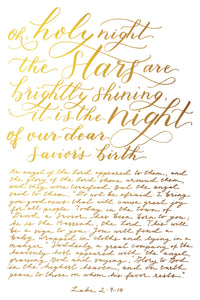 oh, holy night
the stars are
brightly shining,
it is the night
of our dear
Savior's birth
An angel of the Lord appeared to them, and
the glory of the Lord shone around them
and they were terrified. But the angel
said to them, "Do not be afraid. I bring
you good news that will cause great joy
for all people. Today in the town of
David a Savior has been born to you;
he is the Messiah, the Lord. This will
be a sign to you: You will find a
baby wrapped in cloths and lying in a
manger." Suddenly a great company of the
heavenly host appeared with the angel
praising God and saying, "Glory to God
in the highest heaven, and on earth
peace to those on whom his favor rests."
Luke 2:9-14